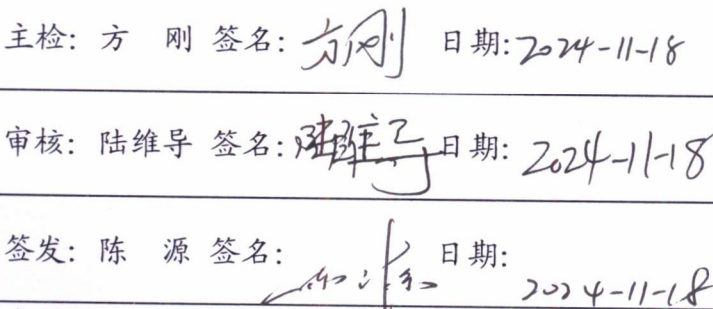 主检: 方 刚 签名: 方刚 日期: 2024-11-18
审核: 陆维导 签名: 陆维导 日期: 2024-11-18
签发: 陈 源 签名: 日期: 2024-11-18